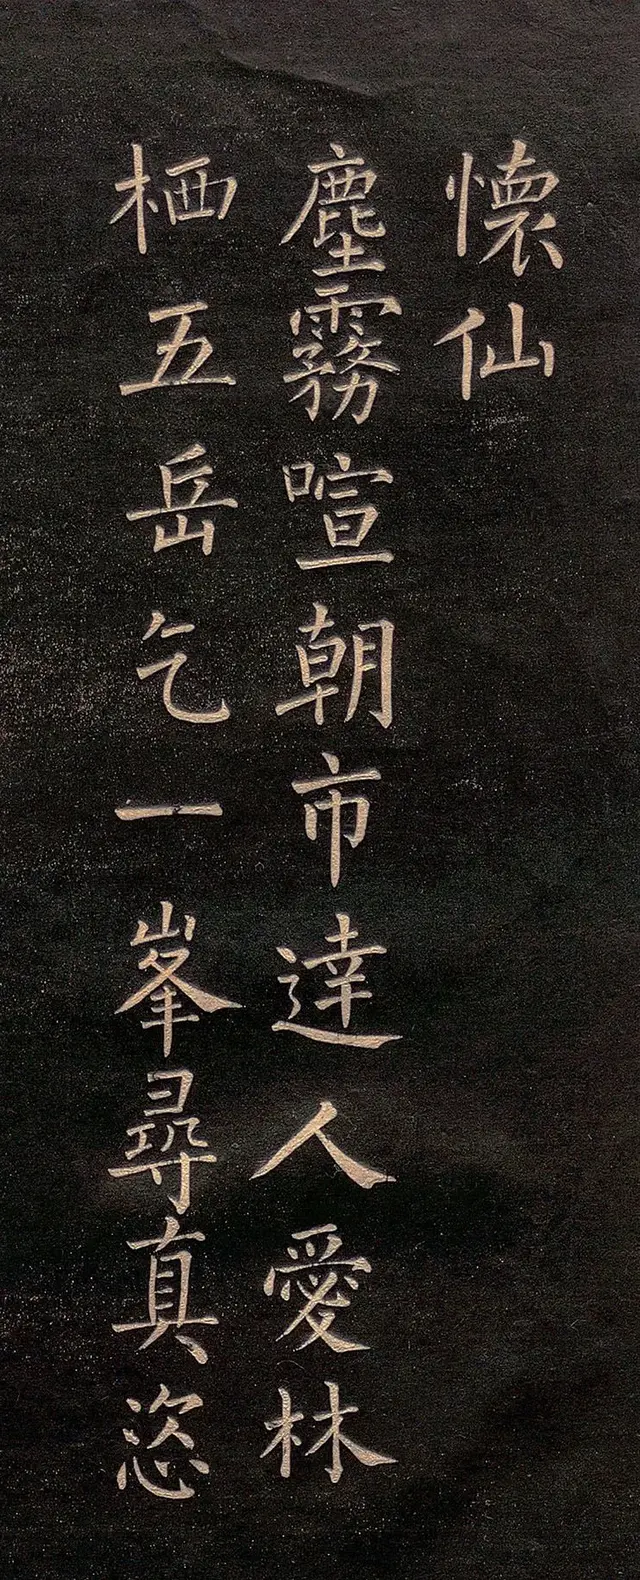 懐仙
塵霧喧朝市達人愛林
栖五岳乞一峯尋真恣